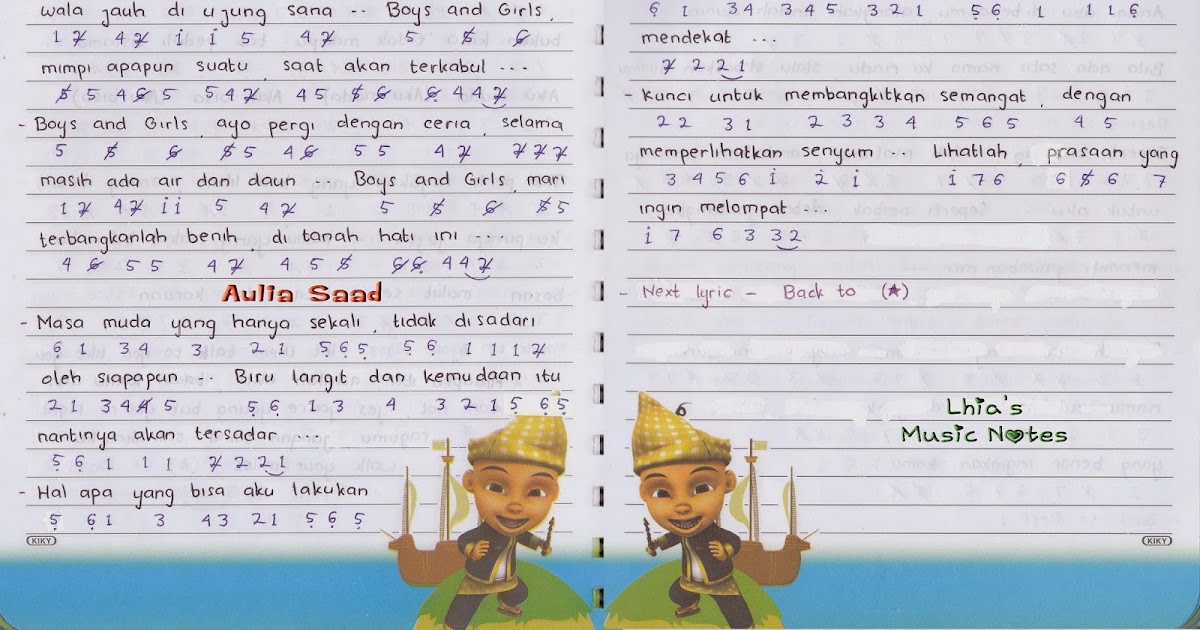 wala jauh di ujung sana -- Boys and Girls,
1 7̸ 4 7̸ i i 5 4 7̸ 5 5̸ 6̸
mimpi apapun suatu saat akan terkabul ...
5̸ 5 4 6̸ 5 5 4 7̸ 4 5 5̸ 6̸ 6̸ 4 4 7̸
- Boys and Girls, ayo pergi dengan ceria, selama
5 5̸ 6̸ 5̸ 5 4 6̸ 5 5 4 7̸ 7̸ 7̸ 7̸
masih ada air dan daun ... Boys and Girls, mari
1 7̸ 4 7̸ i i 5 4 7̸ 5 5̸ 6̸ 5̸ 5
terbangkanlah benih, di tanah hati ini ....
4 6̸ 5 5 4 7̸ 4 5 5̸ 6̸ 6̸ 4 4 7̸
Aulia Saad
- Masa muda yang hanya sekali, tidak disadari
6̣ 1 3 4 3 2 1 5̣ 6̣ 5̣ 5̣ 6̣ 1 1 1 7̸
oleh siapapun ... Biru langit dan kemudaan itu
2 1 3 4 4̸ 5 5̣ 6̣ 1 3 4 3 2 1 5̣ 6̣ 5̣
nantinya akan tersadar ....
5̣ 6̣ 1 1 1 7̸ 2 2 1
- Hal apa yang bisa aku lakukan
5̣ 6̣ 1 3 4 3 2 1 5̣ 6̣ 5̣
KIKY
6̣ 1 3 4 3 4 5 3 2 1 5̣ 6̣ 1 1 1 6̣
mendekat ...
7̸ 2 2 1
- Kunci untuk membangkitkan semangat, dengan
2 2 3 1 2 3 3 4 5 6 5 4 5
memperlihatkan senyum -- Lihatlah, prasaan yang
3 4 5 6 i 2̇ i i 7 6 6 5̸ 6 7
ingin melompat ...
i 7 6 3 3 2
- Next lyric - Back to (★)
6
Lhia's
Music Notes
KIKY